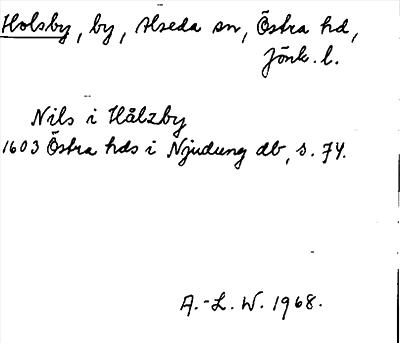 Holsby, by, Alseda sn, Östra hd,
Jönk. l.
Nils i Hålzby
1603 Östra hds i Njudung db, s. 74.
A.-L. W. 1968.